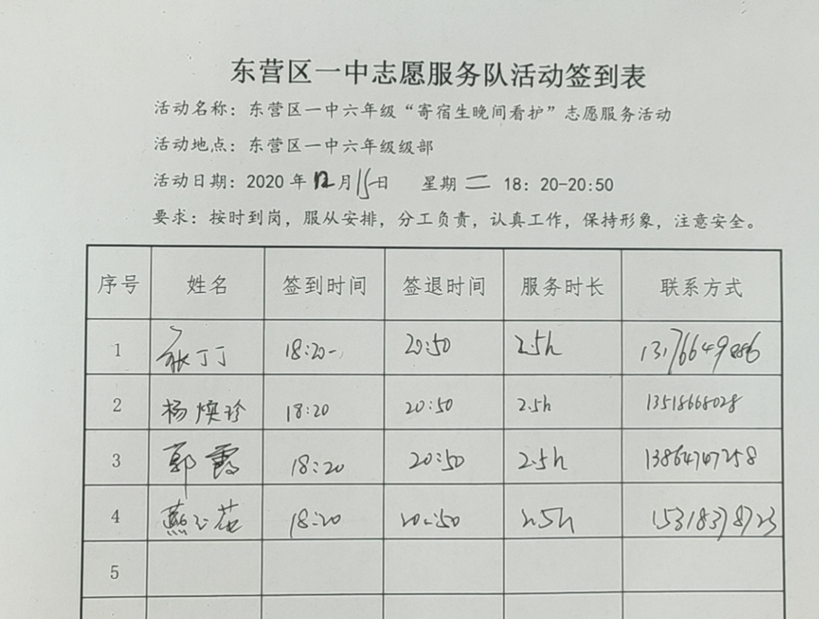 东营区一中志愿服务队活动签到表
活动名称：东营区一中六年级“寄宿生晚间看护”志愿服务活动
活动地点：东营区一中六年级级部
活动日期：2020年12月15日 星期二 18：20-20:50
要求：按时到岗，服从安排，分工负责，认真工作，保持形象，注意安全。
序号 姓名 签到时间 签退时间 服务时长 联系方式
1 张丁丁 18:20 20:50 2.5h
2 杨焕珍 18:20 20:50 2.5h 13518668028
3 郭霞 18:20 20:50 2.5h 13864747258
4 18:20 20:50 2.5h 15318378723
5